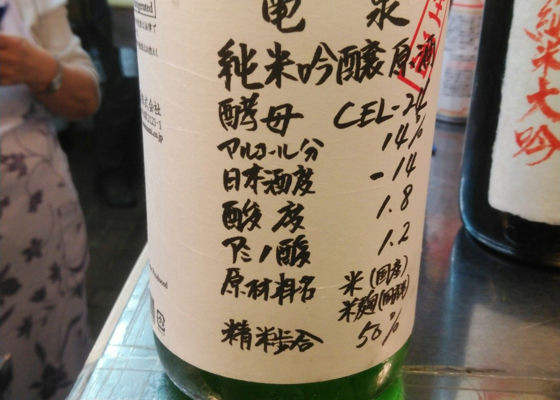 亀泉
純米吟醸原酒
酵母 CEL-24
アルコール分 14%
日本酒度 -14
酸度 1.8
アミノ酸 1.2
原材料名 米(国産)
米麹(国産米)
精米歩合 50%
純米大吟
株式会社